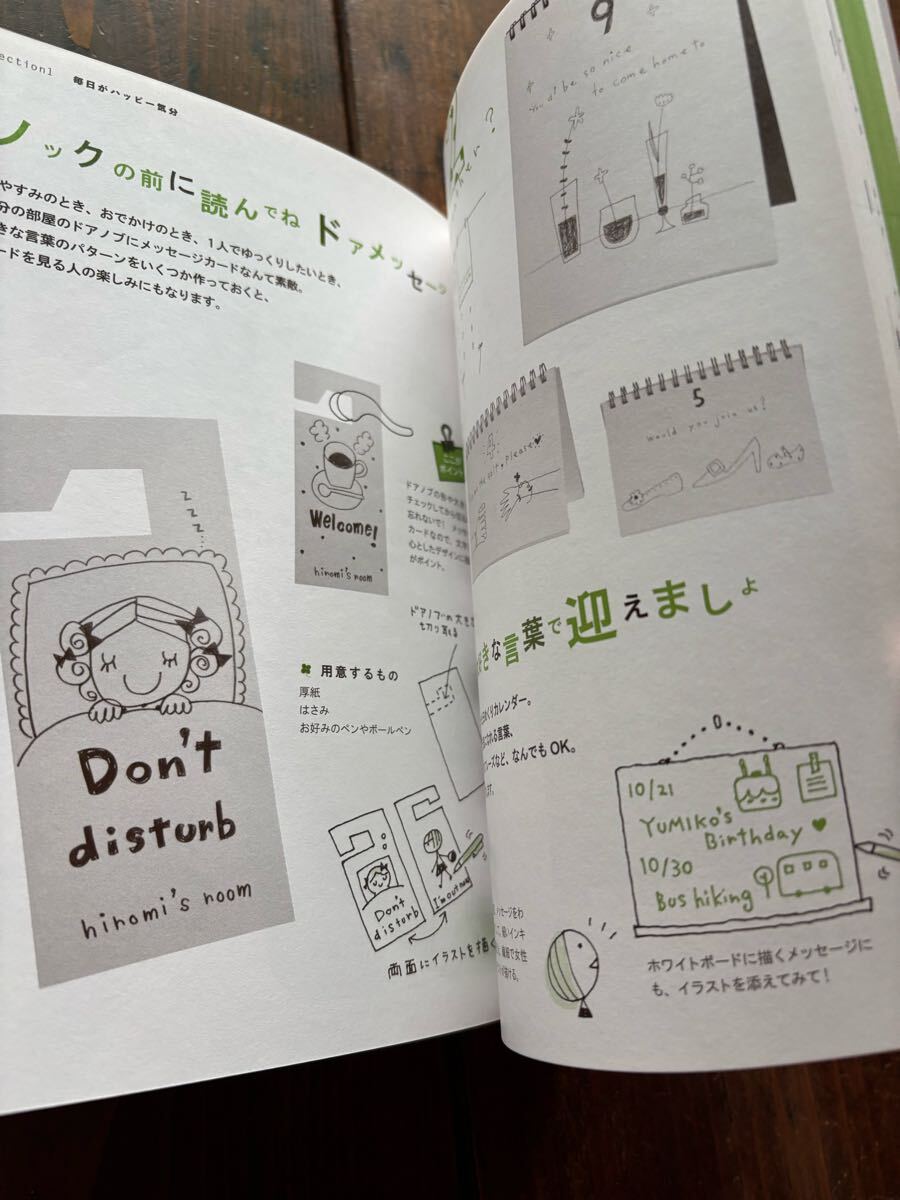 ection1 毎日がハッピー気分
ノックの前に読んでね ドアメッセー
やすみのとき、おでかけのとき、1人でゆっくりしたいとき、
分の部屋のドアノブにメッセージカードなんて素敵。
きな言葉のパターンをいくつか作っておくと、
ードを見る人の楽しみにもなります。
zzz...
Don't
disturb
hiromi's room
Welcome!
hiromi's room
ここが
ポイント
ドアノブの
チェックして
忘れないで!
カードなので、文字
心としたデザインに
がポイント。
ドアノブの大きさ
切り取る
用意するもの
厚紙
はさみ
お好みのペンやボールペン
Don't
disturb
I'm out now
両面にイラストを描く
9
You'd be so nice
to come home to
4
the salt, please♥
5
would you join us?
きな言葉で迎えましょ
めくりカレンダー。
なれる言葉、
ーズなど、なんでもOK。
ます。
10/21
YUMIKo's
Birthday ♥
10/30
Bus hiking
メッセージをわ
細いインキ
で女性
描ける。
ホワイトボードに描くメッセージに
も、イラストを添えてみて!